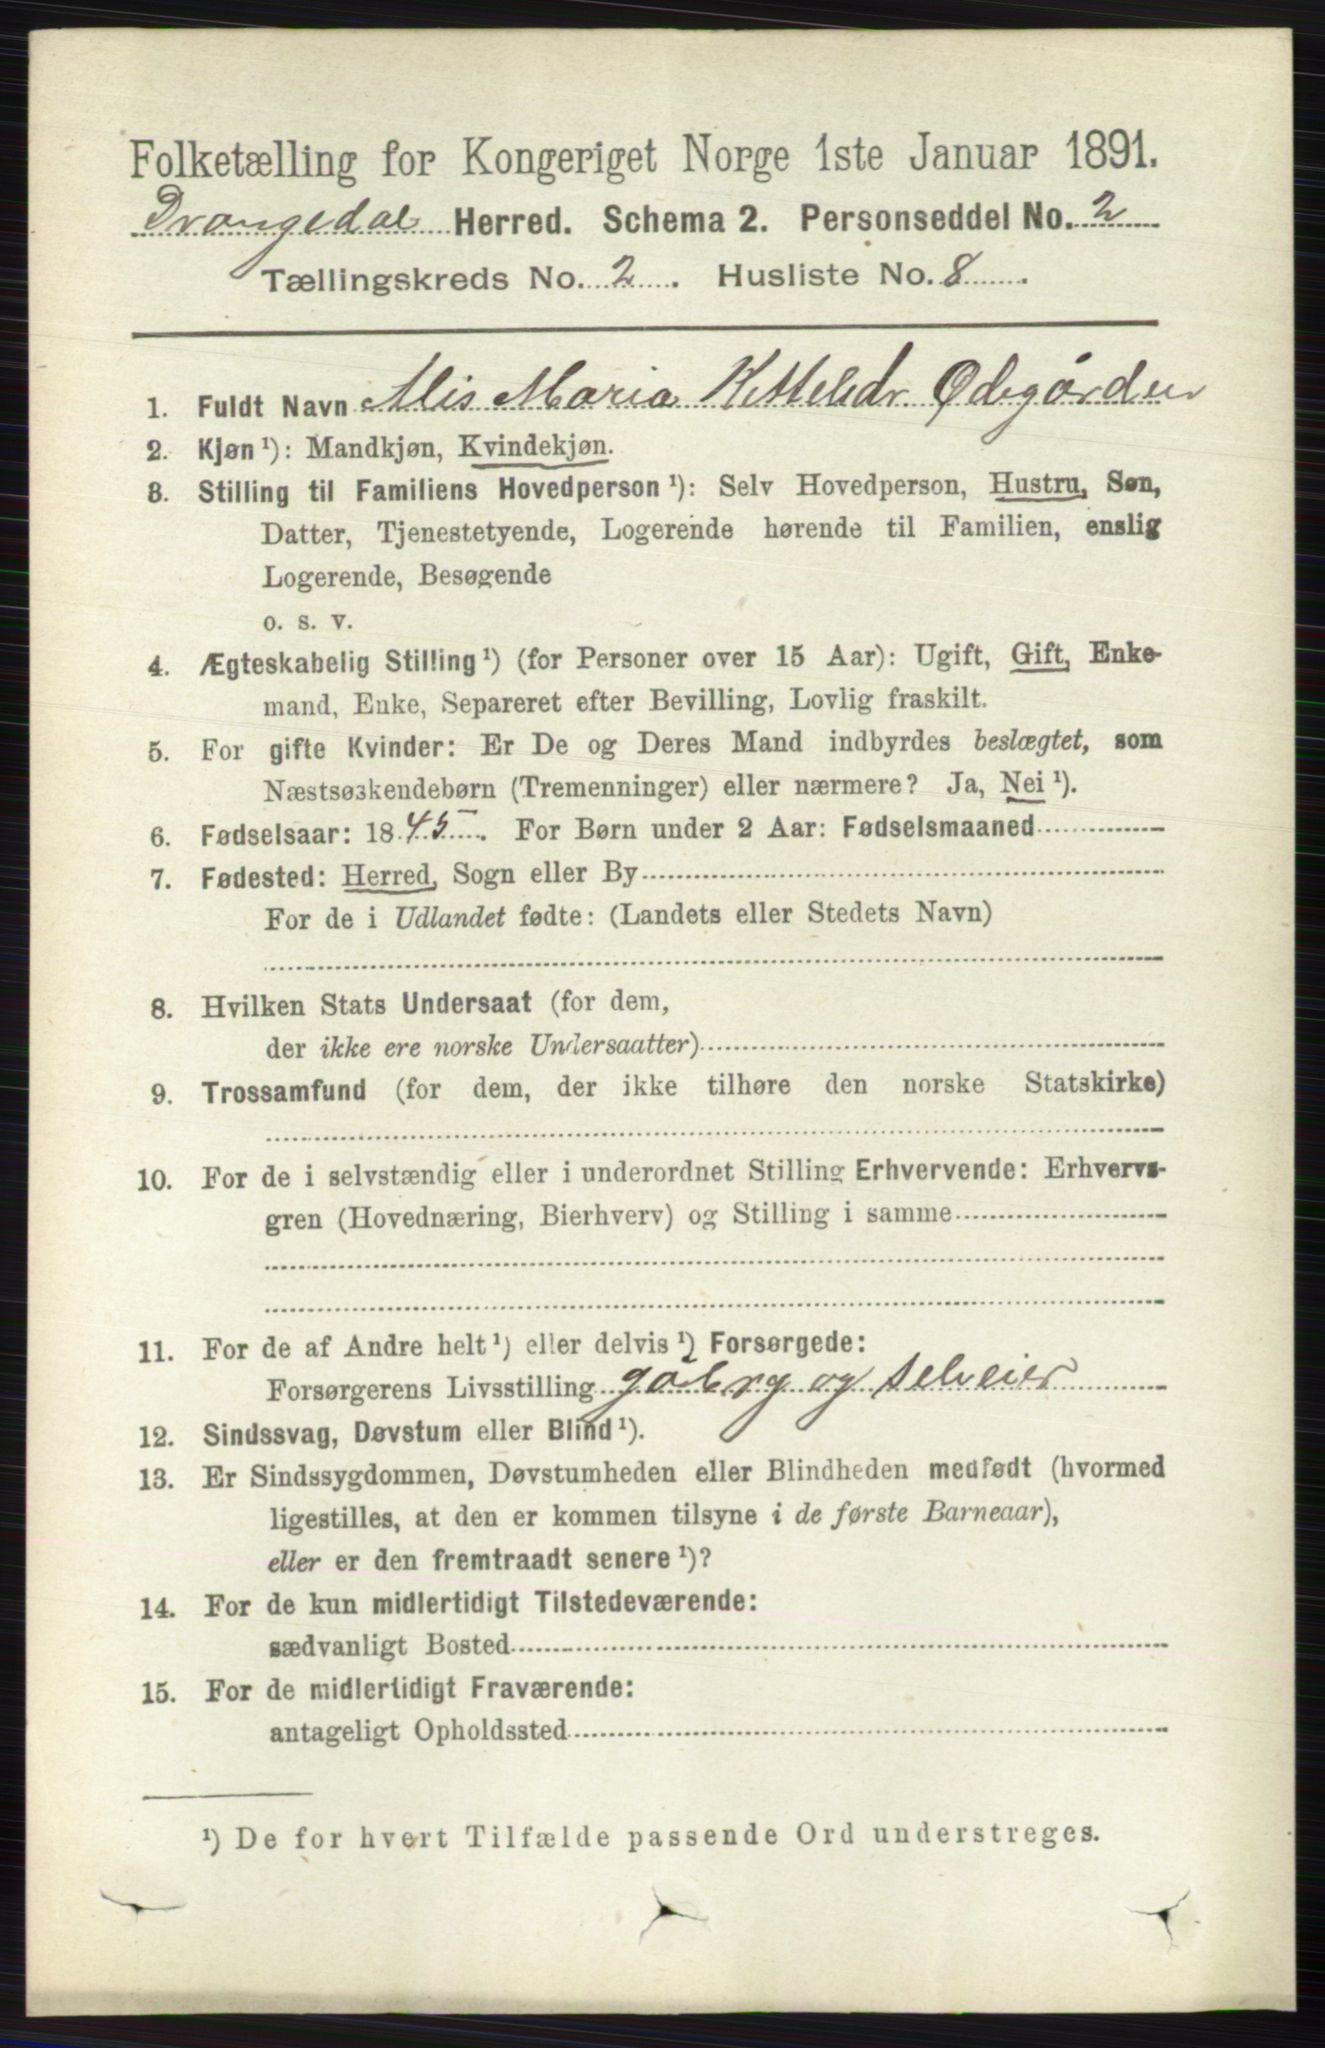 Folketælling for Kongeriget Norge 1ste Januar 1891.
Drangedal Herred. Schema 2. Personseddel No. 2
Tællingskreds No. 2. Husliste No. 8.
1. Fuldt Navn Alis Maria Kittelsdr Ødegården
2. Kjøn ¹): Mandkjøn, Kvindekjøn.
3. Stilling til Familiens Hovedperson ¹): Selv Hovedperson, Hustru, Søn,
Datter, Tjenestetyende, Logerende hørende til Familien, enslig
Logerende, Besøgende
o. s. v.
4. Ægteskabelig Stilling ¹) (for Personer over 15 Aar): Ugift, Gift, Enke-
mand, Enke, Separeret efter Bevilling, Lovlig fraskilt.
5. For gifte Kvinder: Er De og Deres Mand indbyrdes beslægtet, som
Næstsøskendebørn (Tremenninger) eller nærmere? Ja, Nei ¹).
6. Fødselsaar: 1845. For Børn under 2 Aar: Fødselsmaaned
7. Fødested: Herred, Sogn eller By
For de i Udlandet fødte: (Landets eller Stedets Navn)
8. Hvilken Stats Undersaat (for dem,
der ikke ere norske Undersaatter)
9. Trossamfund (for dem, der ikke tilhøre den norske Statskirke)
10. For de i selvstændig eller i underordnet Stilling Erhvervende: Erhvervs-
gren (Hovednæring, Bierhverv) og Stilling i samme
11. For de af Andre helt ¹) eller delvis ¹) Forsørgede:
Forsørgerens Livsstilling gåbrg og selveier
12. Sindssvag, Døvstum eller Blind ¹).
13. Er Sindssygdommen, Døvstumheden eller Blindheden medfødt (hvormed
ligestilles, at den er kommen tilsyne i de første Barneaar),
eller er den fremtraadt senere ¹)?
14. For de kun midlertidigt Tilstedeværende:
sædvanligt Bosted
15. For de midlertidigt Fraværende:
antageligt Opholdssted
¹) De for hvert Tilfælde passende Ord understreges.